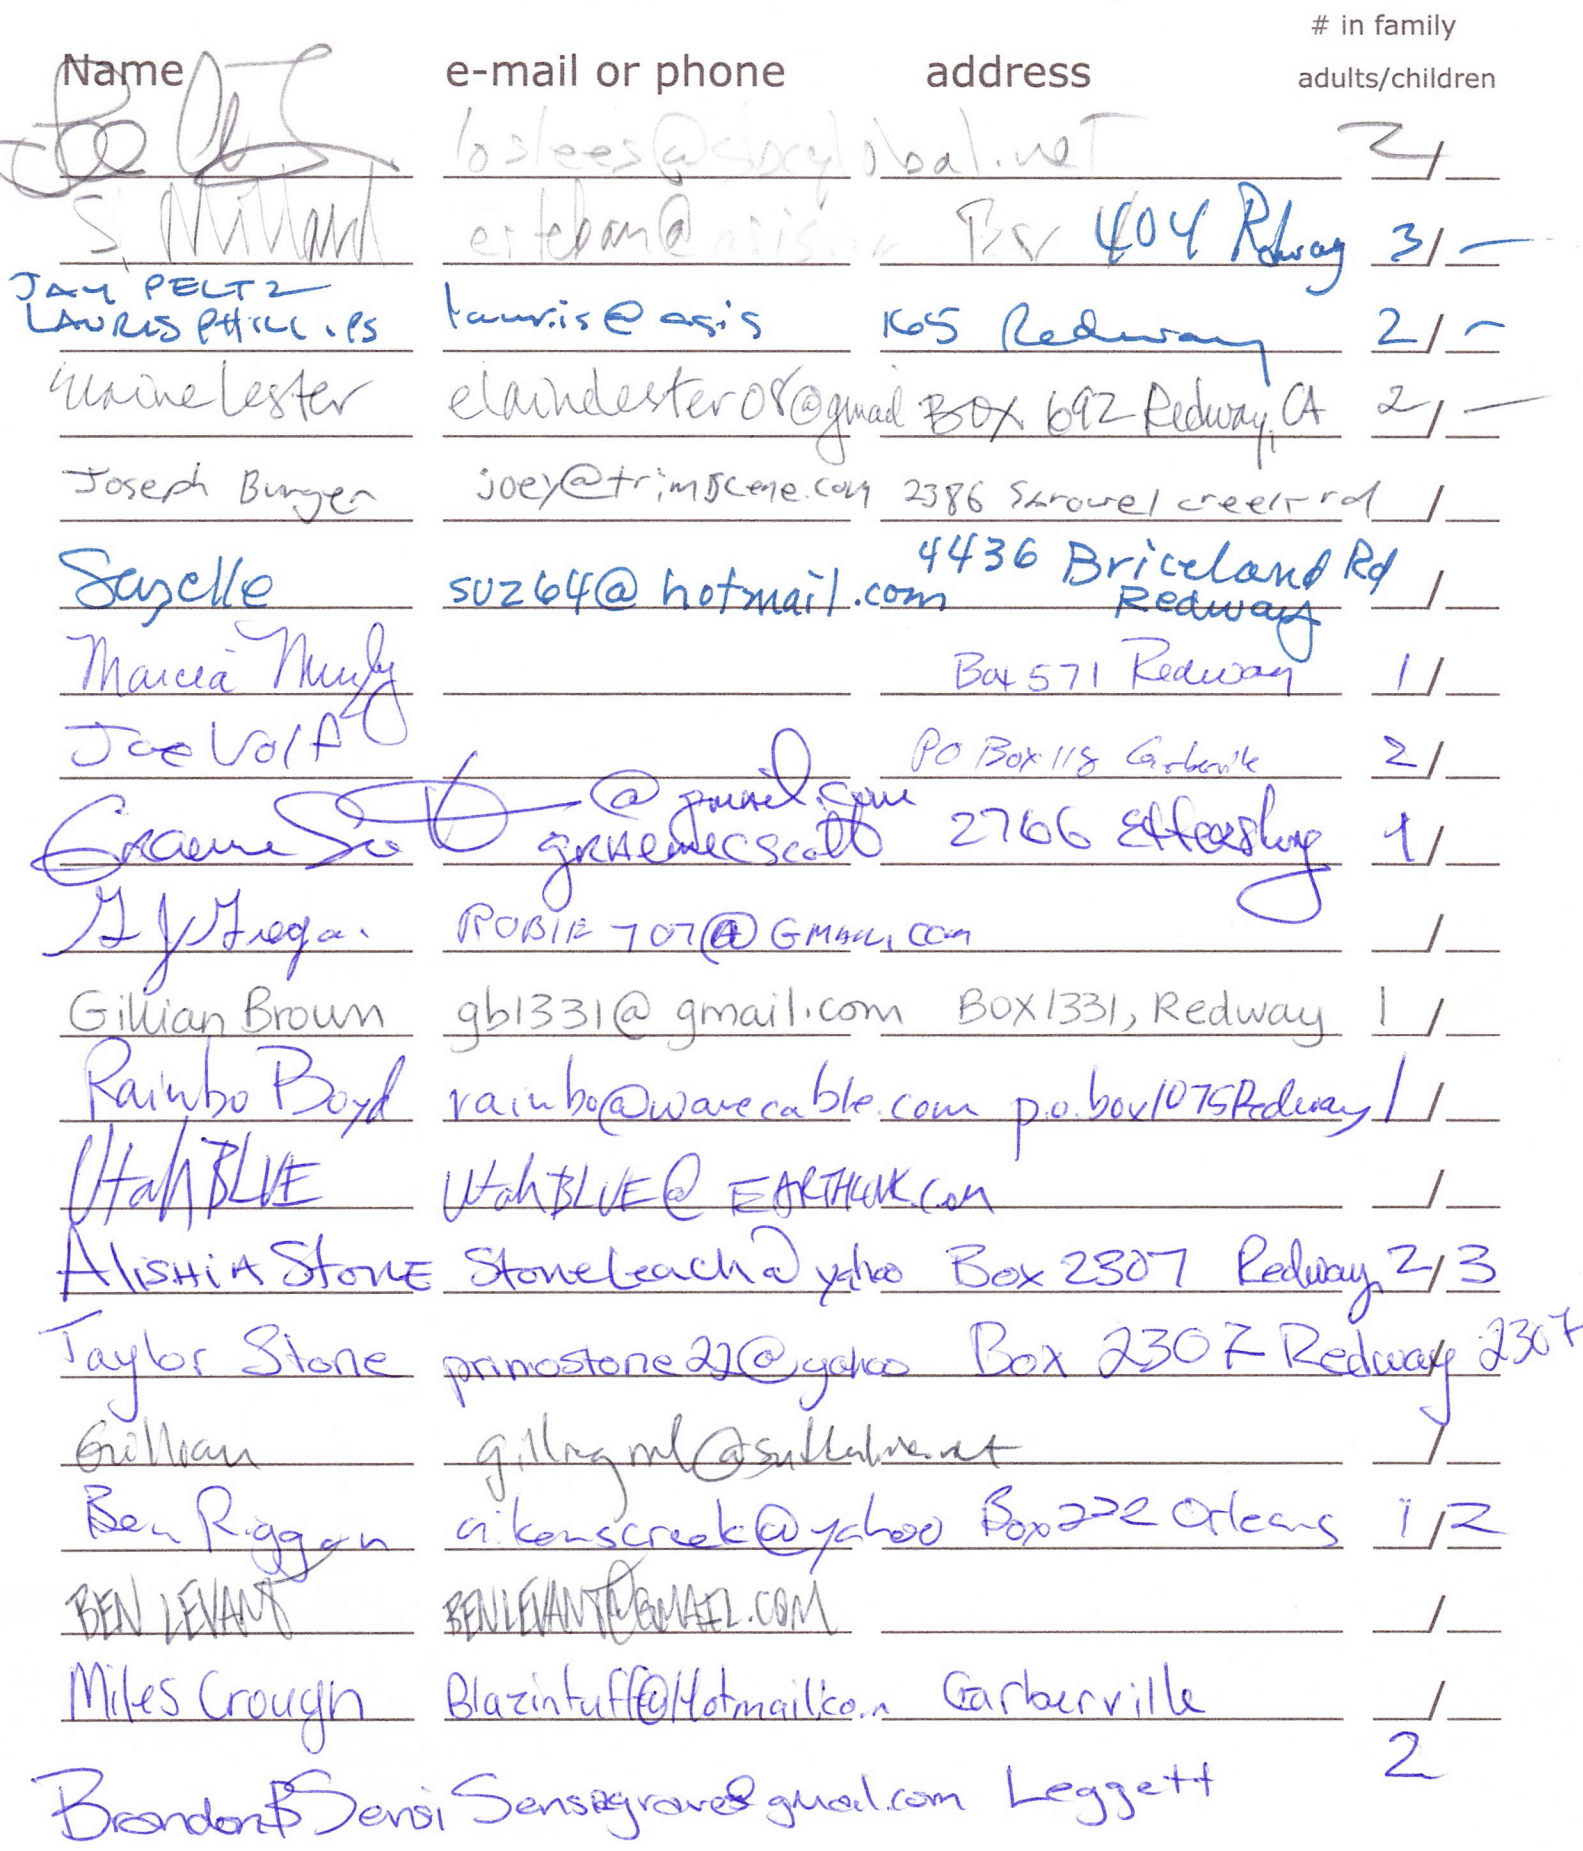 # in family
Name e-mail or phone address adults/children
Lee loslees@sbcglobal.net 2/
S. Millard esteban@asis Box 404 Redway 3/ —
JAY PELTZ
LAURIS PHILLIPS lauris@asis 165 Redway 2/ —
Elaine Lester elainelester08@gmail BOX 692 Redway, CA 2/ —
Joseph Burger joey@trimscene.com 2386 Sprowel creek rd /
4436 Briceland Rd
Suzelle suz64@hotmail.com Redway /
Marcia Box 571 Redway 1/
Joe Wolf PO Box 118 Garberville 2/
@gmail.com
Graeme Scott graemecscott 2766 Ettersburg 1/
ROBIE707@GMAIL.COM /
Gillian Brown gb1331@gmail.com BOX 1331, Redway 1 /
Rainbo Boyd rainbo@wavecable.com p.o. box 1075 Redway 1 /
Utah BLUE UtahBLUE@EARTHLINK.COM /
AlisHiA StonE Stoneleach@yahoo Box 2307 Redway 2/3
Taylor Stone primostone22@yahoo Box 2307 Redway / 2307
Gillian /
Ben Riggan aikenscreek@yahoo Box 222 Orleans 1/2
BEN LEVANT BENLEVANT@GMAIL.COM /
Miles Crough Blazintuff@Hotmail.com Garberville /
2
Brandon Sensi Leggett